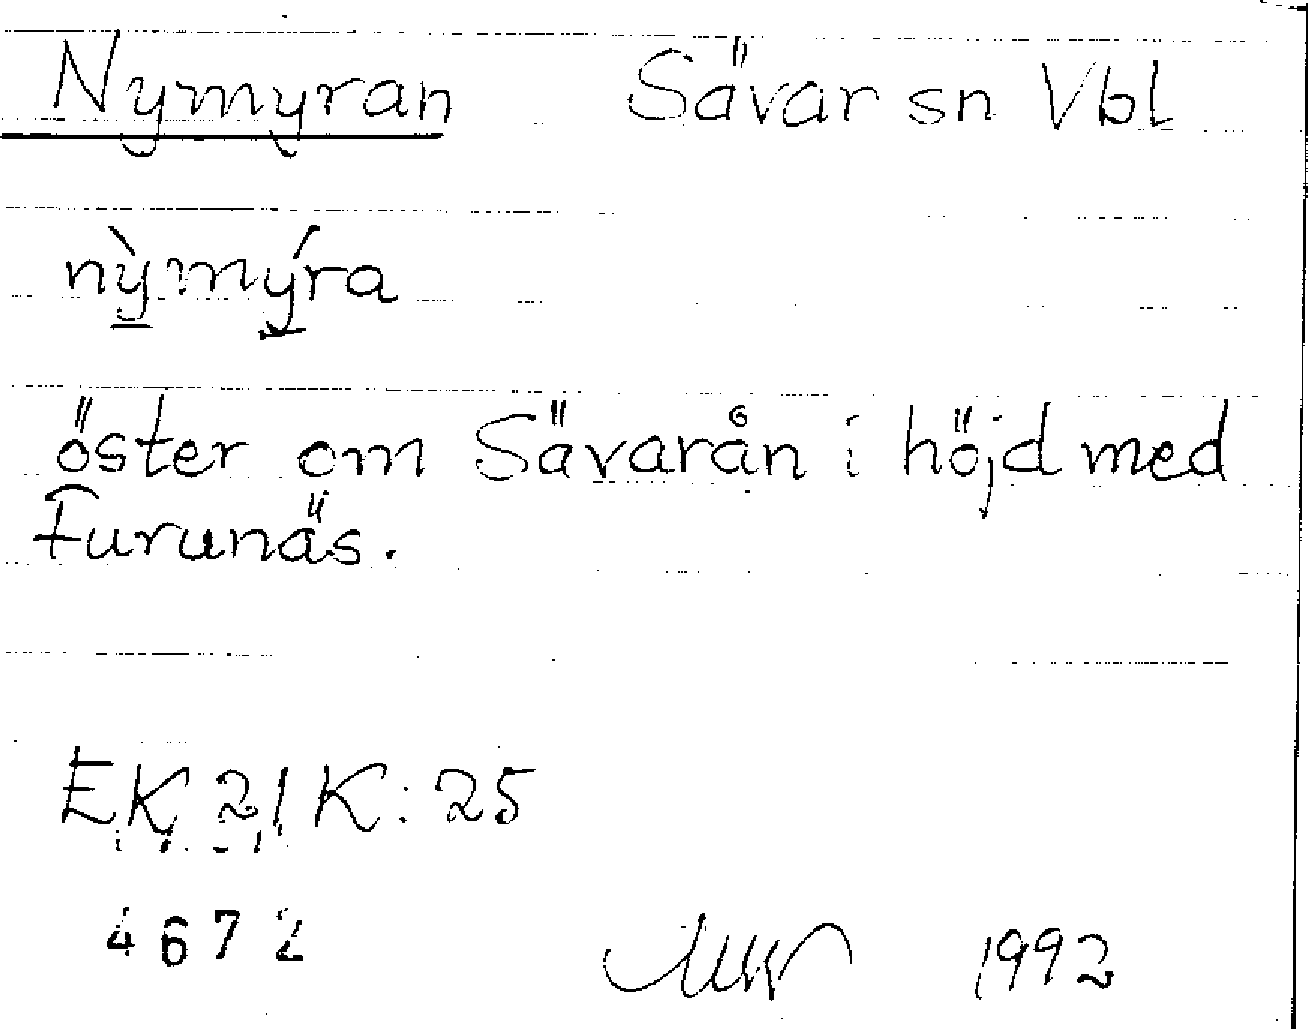 Nymyran Sävar sn Vbl
nỳmýra
öster om Sävarån i höjd med
Furunäs.
EK 21 K: 25
4672 1992